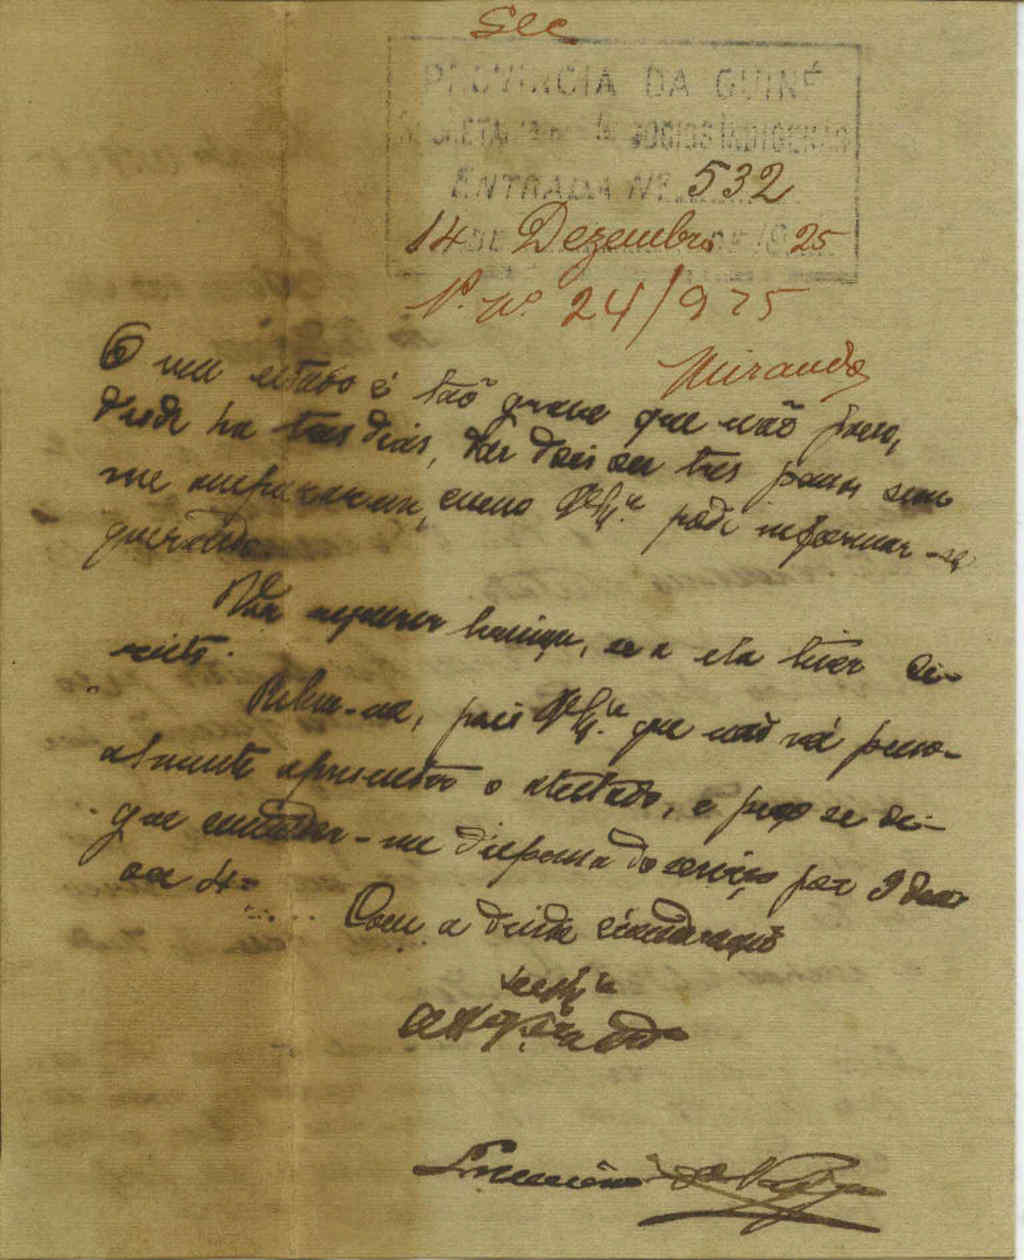 Sec
PROVINCIA DA GUINÉ
SECRETARIA DOS NEGOCIOS INDIGENAS
ENTRADA Nº 532
14 DE Dezembro DE 1925
P. nº 24/925
Miranda
O meu estado é tão grave que não posso,
desde ha tres dias, dar dois ou tres passos sem
me ampararem, como V. Ex.ª pode informar-se
querendo.
Vou requerer licença, se a ela tiver di-
reito.
Releve-me, pois V. Ex.ª que não vá pesso-
almente apresentar o atestado, e peço se di-
gne conceder-me dispensa do serviço por 3 dias
ou 4.
Com a devida consideração
De V. Ex.ª